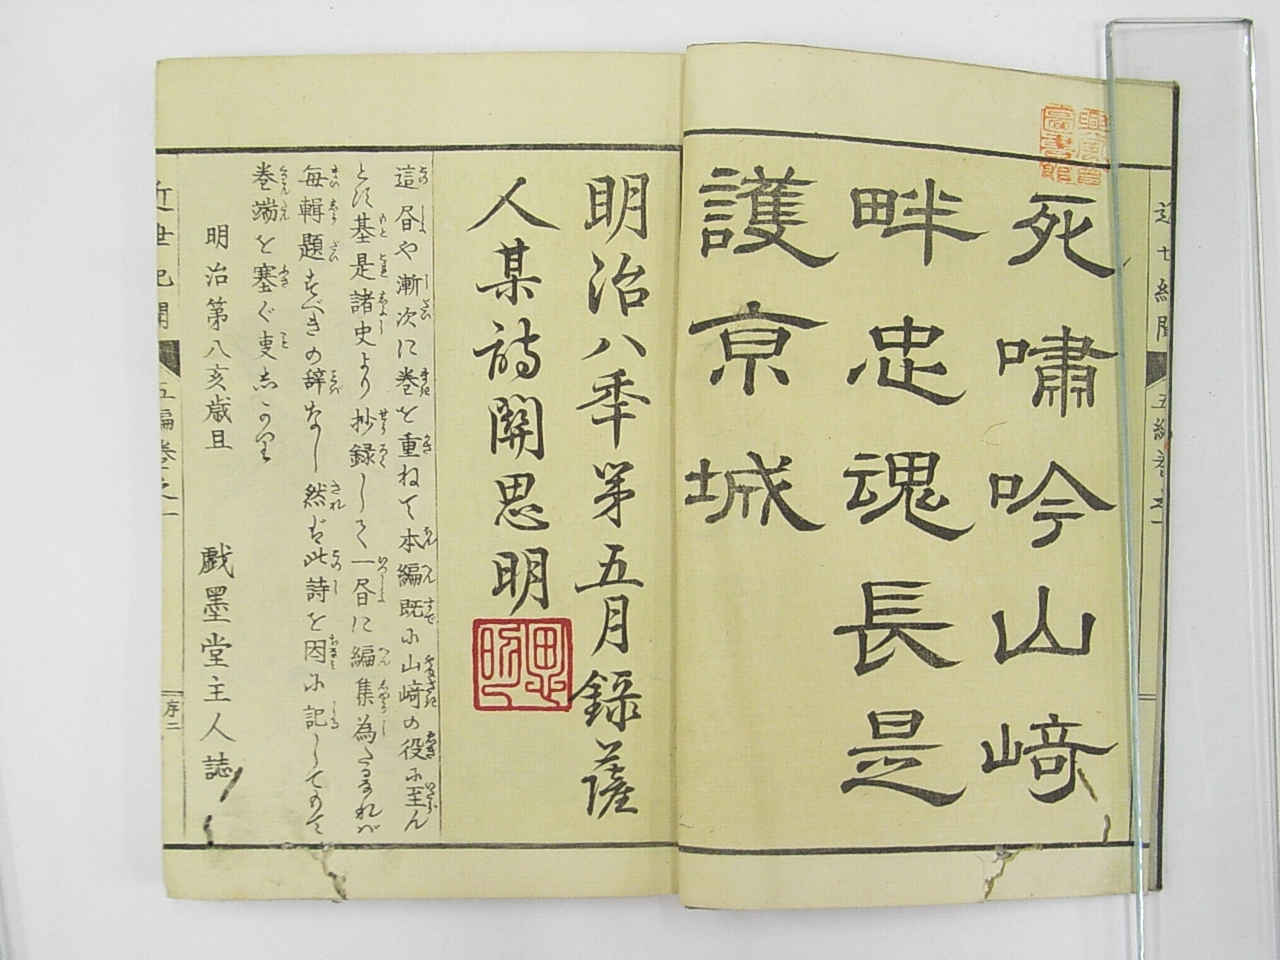 死嘯吟山﨑
畔忠魂長是
護京城
近世紀聞
五編巻之一
明治八季第五月録薩
人某詩關思明
這昼や漸次に巻を重ねて本編既に山﨑の役に至ん
とす基是諸史より抄録して一昼に編集為たるなれバ
毎輯題すべきの辞なし然ば此詩を因に記してもて
巻端を塞ぐ事しかり
明治第八亥歳旦
戯墨堂主人誌
近世紀聞
五編巻之一
序二